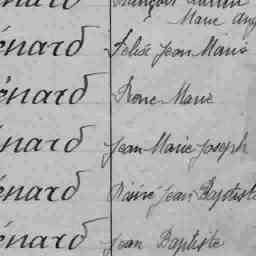 énard François
Marie Ang
énard Félise Jean Marie
énard Irene Marie
énard Jean Marie Joseph
énard Désiré Jean Baptiste
énard Jean Baptiste